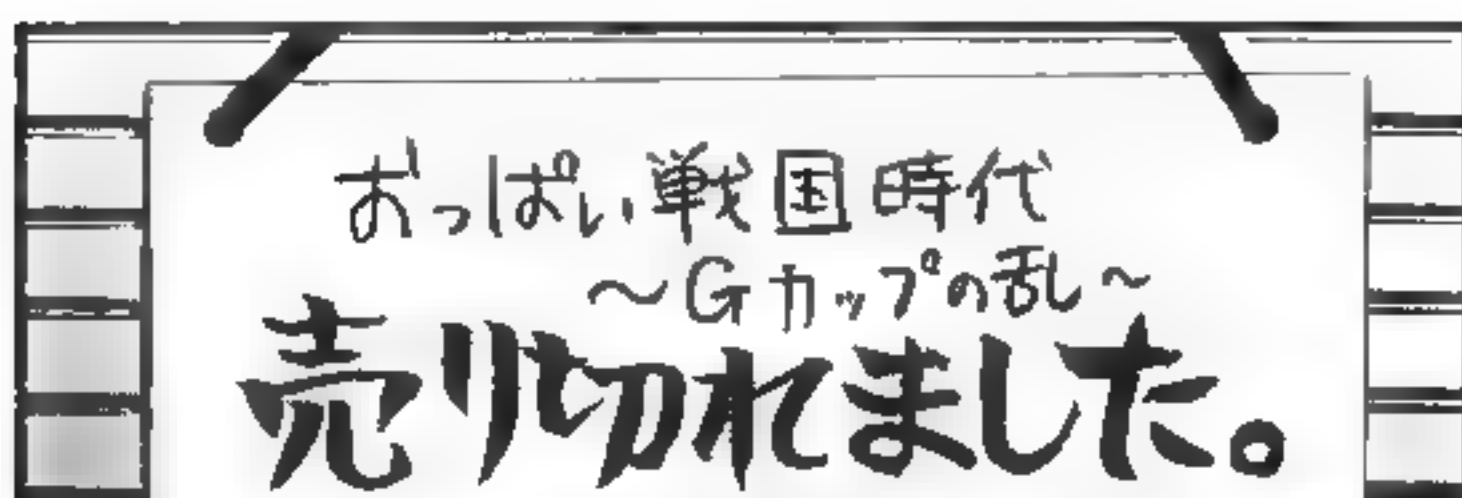 おっぱい戦国時代
～Gカップの乱～
売り切れました。